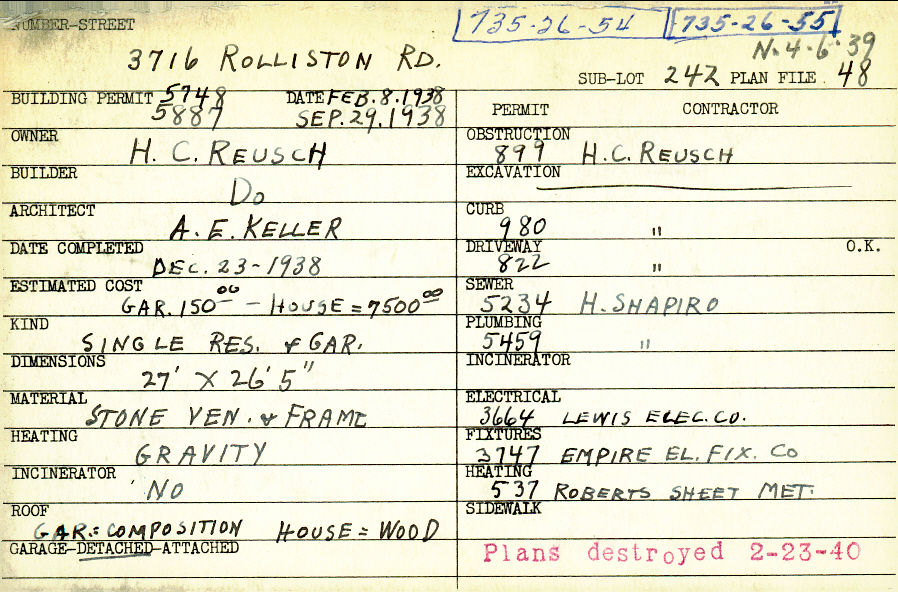 NUMBER-STREET
735-26-54 735-26-55
N.4-6-39
3716 ROLLISTON RD.
SUB-LOT 242 PLAN FILE. 48
BUILDING PERMIT 5748 DATE FEB.8.1938
5887 SEP.29.1938
PERMIT CONTRACTOR
OWNER
H. C. REUSCH
OBSTRUCTION
899 H.C. REUSCH
BUILDER
Do
EXCAVATION
ARCHITECT
A. E. KELLER
CURB
980 "
DATE COMPLETED
DEC. 23-1938
DRIVEWAY O.K.
822 "
ESTIMATED COST
GAR. 150 00 - HOUSE = 7500 00
SEWER
5234 H. SHAPIRO
KIND
SINGLE RES. & GAR.
PLUMBING
5459 "
DIMENSIONS
27' X 26' 5"
INCINERATOR
MATERIAL
STONE VEN. & FRAME
ELECTRICAL
3664 LEWIS ELEC. CO.
HEATING
GRAVITY
FIXTURES
3747 EMPIRE EL. FIX. Co
INCINERATOR
NO
HEATING
537 ROBERTS SHEET MET.
ROOF
GAR.= COMPOSITION HOUSE = WOOD
SIDEWALK
GARAGE-DETACHED-ATTACHED
Plans destroyed 2-23-40